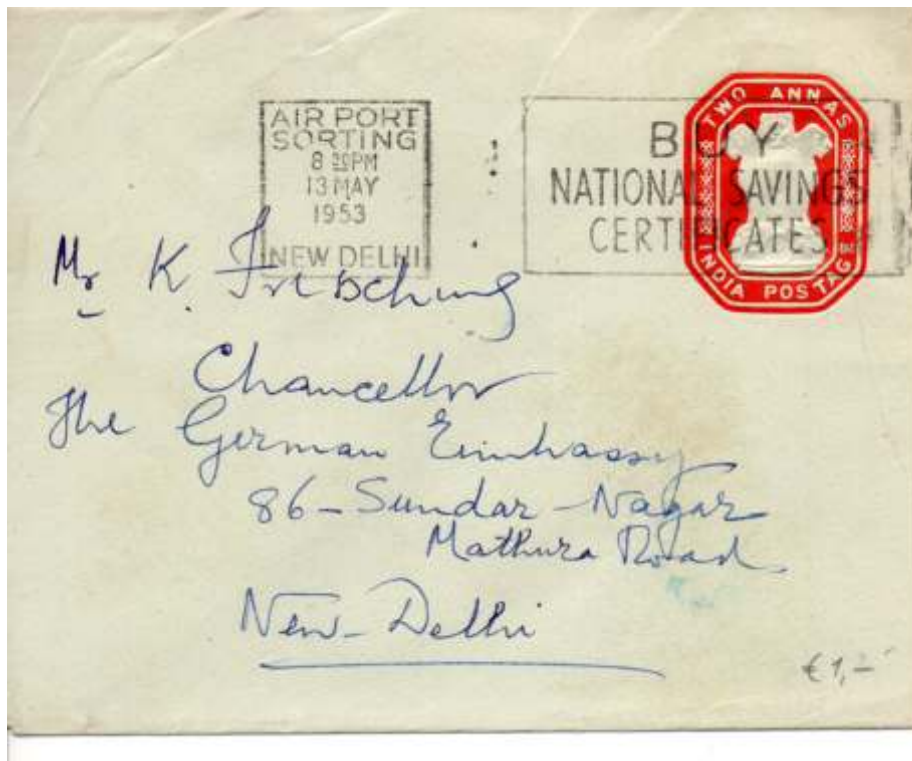 AIR PORT
SORTING
8 30PM
13 MAY
1953
NEW DELHI
BUY
NATIONAL SAVINGS
CERTIFICATES
TWO ANNAS
INDIA POSTAGE
Mr K.
Chancellor
The German Embassy
86-Sundar-Nagar
Mathura Road
New-Delhi
€1,-